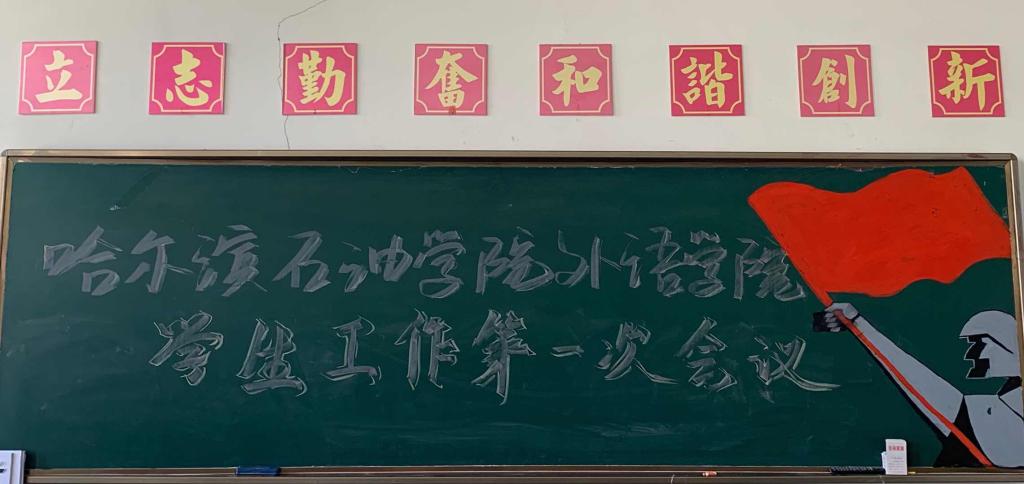 立志勤奮和諧創新
哈尔滨石油学院外语学院
学生工作第一次会议